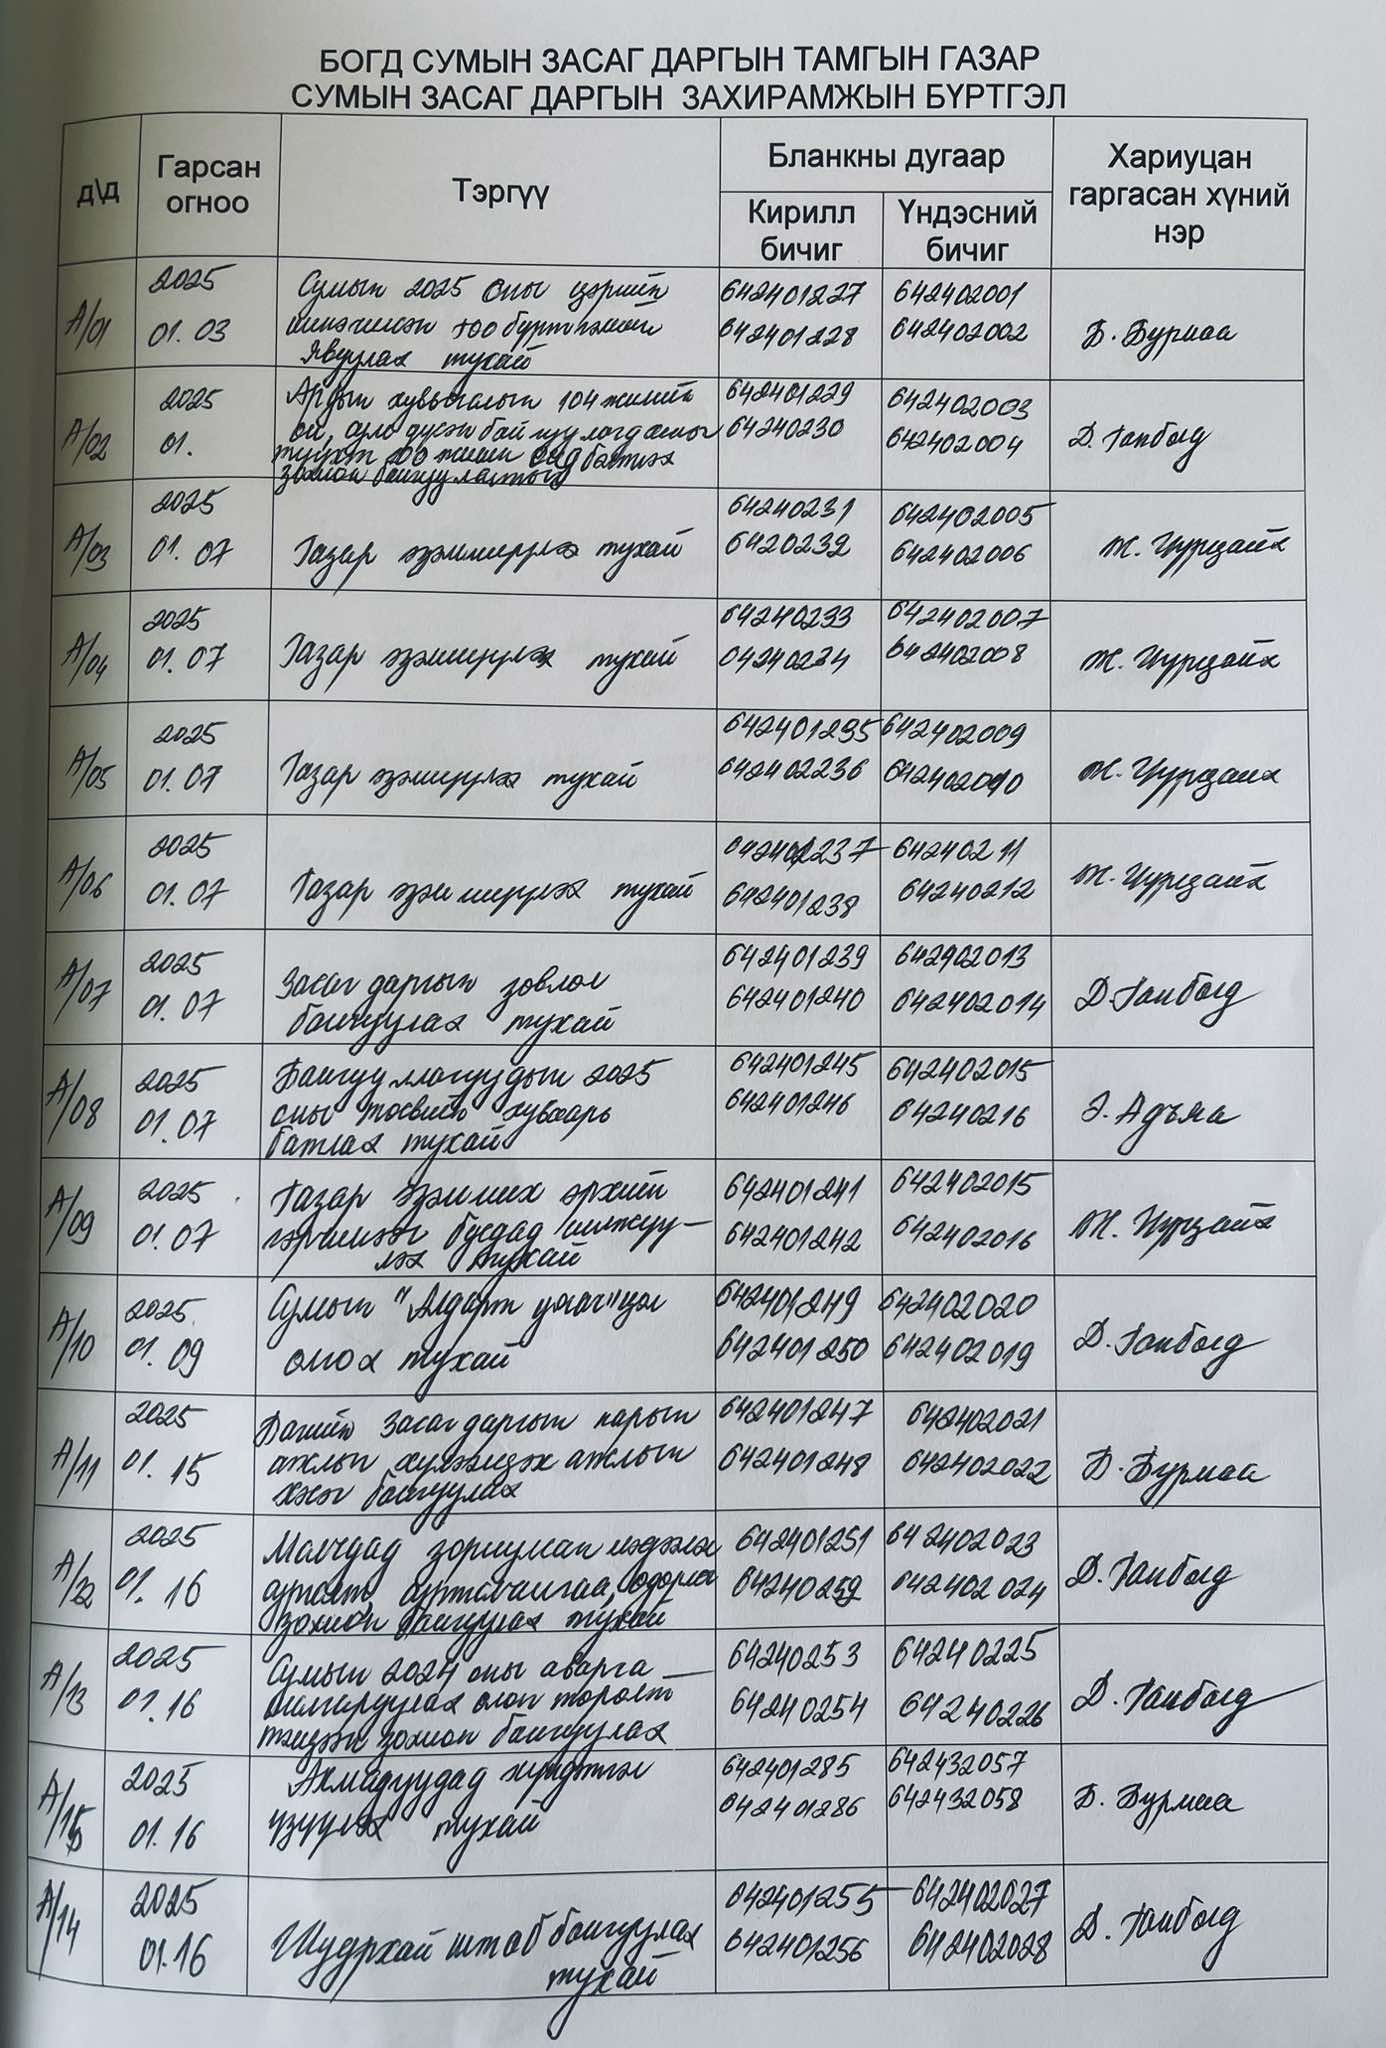 БОГД СУМЫН ЗАСАГ ДАРГЫН ТАМГЫН ГАЗАР
СУМЫН ЗАСАГ ДАРГЫН ЗАХИРАМЖЫН БҮРТГЭЛ
д\д
Гарсан
огноо
Тэргүү
Бланкны дугаар
Кирилл
бичиг
Үндэсний
бичиг
Хариуцан
гаргасан хүний
нэр
А/01
2025
01.03
Сумын 2025 оны цэргийн
тоо бүртгэлийг
явуулах тухай
642401227
642401228
642402001
642402002
Б. Бурмаа
А/02
2025
01.
Ардын хувьсгалын 104 жилийн
ой,
зохион байгуулах тухай
642401229
64240230
642402003
642402004
Д. Ганболд
А/03
2025
01.07
Газар эзэмшүүлэх тухай
64240231
6420232
642402005
642402006
Ж.
А/04
2025
01.07
Газар эзэмшүүлэх тухай
64240233
64240234
642402007
642402008
Ж.
А/05
2025
01.07
Газар эзэмшүүлэх тухай
642401235
642402236
642402009
Ж.
А/06
2025
01.07
Газар эзэмшүүлэх тухай
642401238
64240211
64240212
Ж.
А/07
2025
01.07
Засаг даргын зөвлөл
байгуулах тухай
642401239
642401240
642402013
642402014
Д. Ганболд
А/08
2025
01.07
Байгууллагуудын 2025
оны төсвийн хуваарь
батлах тухай
642401245
642401246
642402015
64240216
Э. Адъяа
А/09
2025
01.07
Газар эзэмших эрхийн
гэрчилгээг бусдад шилжүү-
лэх тухай
642401241
642401242
642402015
642402016
Ж.
А/10
2025
01.09
Сумын "Алдарт уяач" цол
олгох тухай
642401249
642401250
642402020
642402019
Д. Ганболд
А/11
2025
01.15
Багийн Засаг даргын нарын
ажлыг хүлээлцэх ажлын
хэсэг байгуулах
642401247
642401248
642402021
642402022
Б. Бурмаа
2025
01.16
Малчдад зориулсан мэдээлэл
сургалт, өдөрлөг
зохион байгуулах тухай
642401251
64240252
642402023
642402024
Д. Ганболд
А/13
2025
01.16
Сумын 2024 оны аварга
шалгаруулах олон төрөлт
тэмцээн зохион байгуулах
64240253
64240254
64240225
64240226
Д. Ганболд
А/15
2025
01.16
Ахмадуудад хүндэтгэл
үзүүлэх тухай
642401285
642401286
642432057
642432058
Б. Бурмаа
А/14
2025
01.16
Шуурхай штаб байгуулах
тухай
642401255
642401256
642402027
642402028
Д. Ганболд